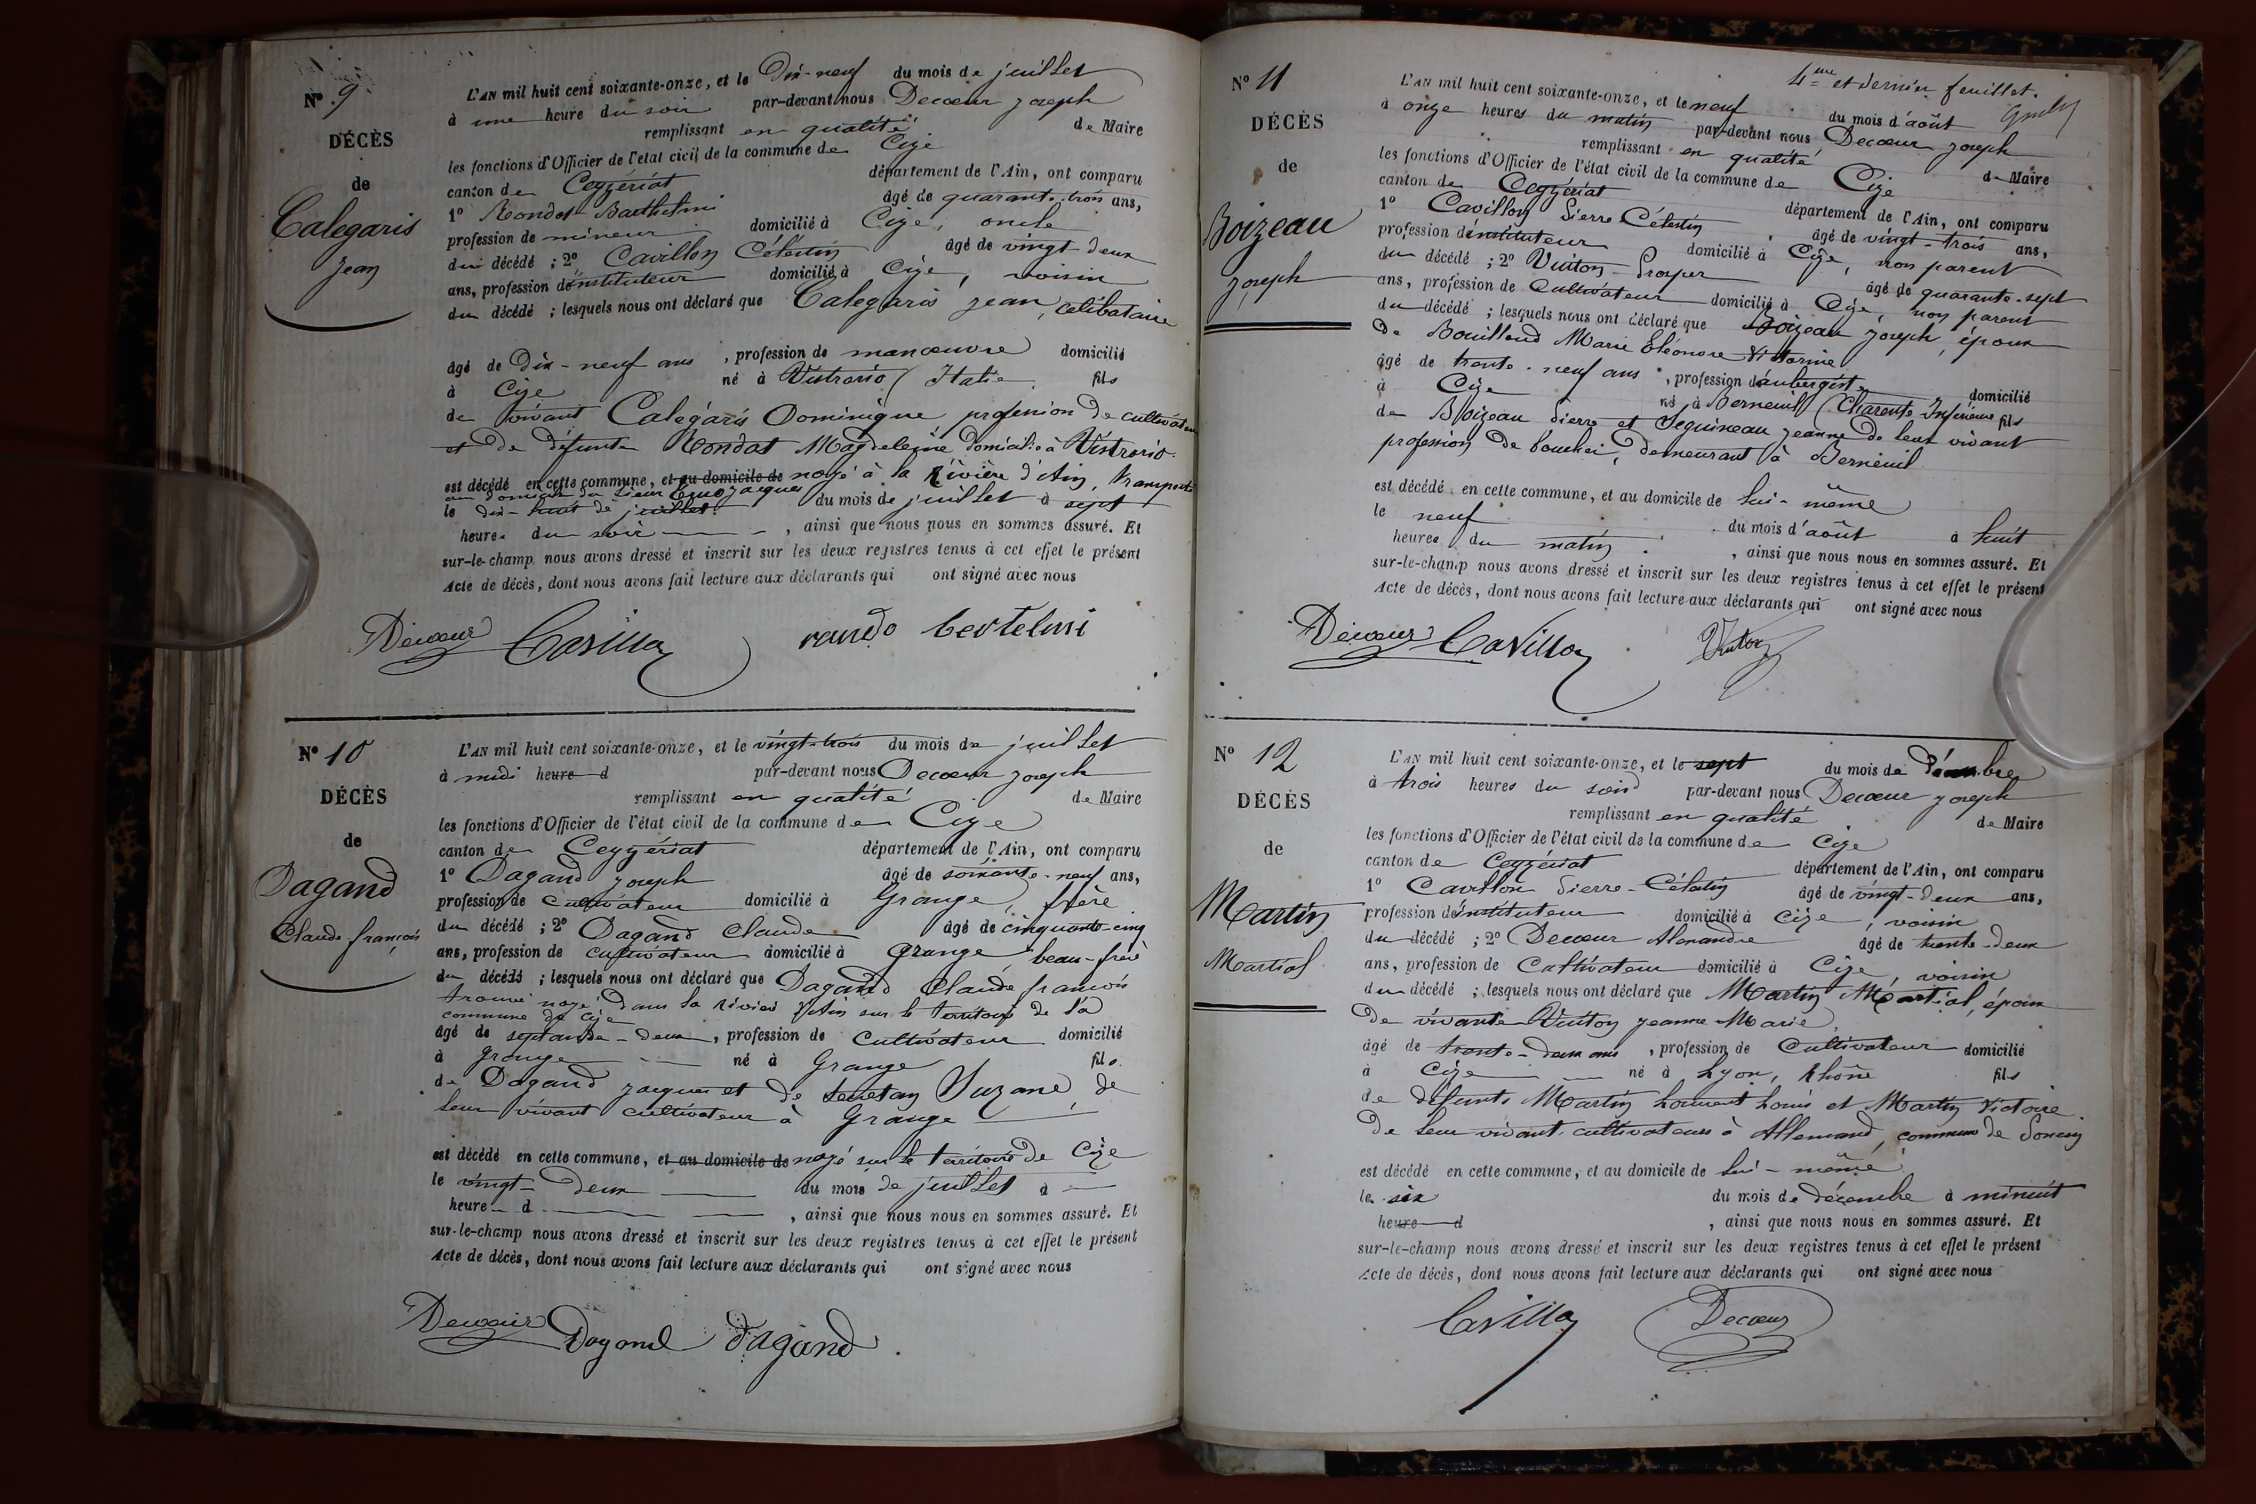 N° 9
DÉCÈS
de
Calegaris
Jean
L'AN mil huit cent soixante-onze, et le dix-neuf du mois de juillet
à une heure du soir par-devant nous Decœur joseph
remplissant en qualité de Maire
les fonctions d'Officier de l'état civil de la commune de Cize
canton de Ceyzériat département de l'Ain, ont comparu
1° Rondot Barthelmi âgé de quarante-trois ans,
profession de mineur domicilié à Cize, oncle
du décédé ; 2° Cavillon Célestin âgé de vingt-deux
ans, profession d'instituteur domicilié à Cize, voisin
du décédé ; lesquels nous ont déclaré que Calegaris jean, célibataire
âgé de dix-neuf ans, profession de manœuvre domicilié
à Cize né à Vistrorio (Italie fils
de vivant Calegaris Dominique profession de cultivateur
et de défunte Rondot Magdeleine domicilié à Vistrorio
est décédé en cette commune, et au domicile de noyé à la Rivière d'Ain, transporté
au domicile du sieur jacques
le dix-huit de juillet du mois de juillet à sept
heures du soir, ainsi que nous nous en sommes assuré. Et
sur-le-champ nous avons dressé et inscrit sur les deux registres tenus à cet effet le présent
Acte de décès, dont nous avons fait lecture aux déclarants qui ont signé avec nous
Decœur Cavillon rondo bertelmi
N° 10
DÉCÈS
de
Dagand
Claude françois
L'AN mil huit cent soixante-onze, et le vingt-trois du mois de juillet
à midi heure d par-devant nous Decœur joseph
remplissant en qualité de Maire
les fonctions d'Officier de l'état civil de la commune de Cize
canton de Ceyzériat département de l'Ain, ont comparu
1° Dagand joseph âgé de soixante-neuf ans,
profession de cultivateur domicilié à Grange, frère
du décédé ; 2° Dagand claude âgé de cinquante-cinq
ans, profession de cultivateur domicilié à Grange beau-frère
du décédé ; lesquels nous ont déclaré que Dagand Claude françois
trouvé noyé dans la rivière d'Ain sur le territoire de la
commune de Cize
âgé de septante-deux, profession de cultivateur domicilié
à Grange né à Grange fils
de Dagand jacques et de Suzane, de
leur vivant cultivateur à Grange
est décédé en cette commune, et au domicile de noyé sur le territoire de Cize
le vingt-deux du mois de juillet à
heure d, ainsi que nous nous en sommes assuré. Et
sur-le-champ nous avons dressé et inscrit sur les deux registres tenus à cet effet le présent
Acte de décès, dont nous avons fait lecture aux déclarants qui ont signé avec nous
Decœur Dagand dagand
4me et dernier feuillet.
N° 11
DÉCÈS
de
Boizeau
joseph
L'AN mil huit cent soixante-onze, et le neuf du mois d'août
à onze heures du matin par-devant nous Decœur joseph
remplissant en qualité de Maire
les fonctions d'Officier de l'état civil de la commune de Cize
canton de Ceyzériat département de l'Ain, ont comparu
1° Cavillon Pierre Célestin âgé de vingt-trois ans,
profession d'instituteur domicilié à Cize, non parent
du décédé ; 2° Vuiton Prosper âgé de quarante-sept
ans, profession de Cultivateur domicilié à Cize, non parent
du décédé ; lesquels nous ont déclaré que Boizeau joseph, époux
de Bouilloud Marie Eléonore Victorine
âgé de trente-neuf ans, profession d'aubergiste domicilié
à Cize né à Berneuil (Charente Inférieure fils
de Boizeau Pierre et Seguineau jeanne de leur vivant
profession de boucher, demeurant à Berneuil
est décédé en cette commune, et au domicile de lui-même
le neuf du mois d'août à huit
heures du matin, ainsi que nous nous en sommes assuré. Et
sur-le-champ nous avons dressé et inscrit sur les deux registres tenus à cet effet le présent
Acte de décès, dont nous avons fait lecture aux déclarants qui ont signé avec nous
Decœur Cavillon Vuiton
N° 12
DÉCÈS
de
Martin
Martial
L'AN mil huit cent soixante-onze, et le sept du mois de décembre
à trois heures du soir par-devant nous Decœur joseph
remplissant en qualité de Maire
les fonctions d'Officier de l'état civil de la commune de Cize
canton de Ceyzériat département de l'Ain, ont comparu
1° Cavillon Pierre-Célestin âgé de vingt-deux ans,
profession d'instituteur domicilié à Cize, voisin
du décédé ; 2° Decœur Alexandre âgé de trente-deux
ans, profession de Cultivateur domicilié à Cize, voisin
du décédé ; lesquels nous ont déclaré que Martin Martial, époux
de vivante Vuiton jeanne Marie
âgé de trente-deux ans, profession de Cultivateur domicilié
à Cize né à Lyon, Rhône fils
de défunts Martin Laurent Louis et Martin Victoire
de leur vivant cultivateurs à Allemand, commune de Poncin
est décédé en cette commune, et au domicile de lui-même
le six du mois de décembre à minuit
heure d, ainsi que nous nous en sommes assuré. Et
sur-le-champ nous avons dressé et inscrit sur les deux registres tenus à cet effet le présent
Acte de décès, dont nous avons fait lecture aux déclarants qui ont signé avec nous
Cavillon Decœur